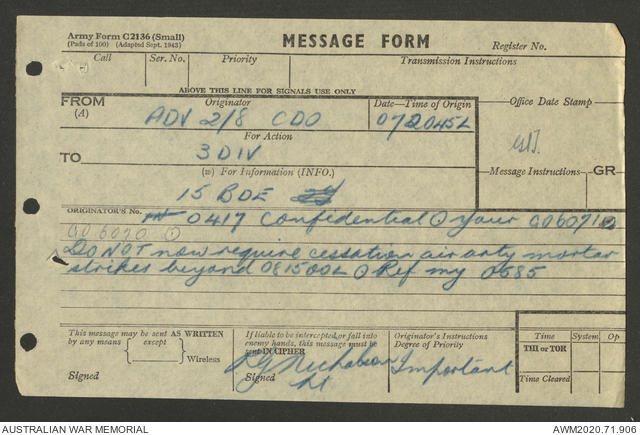 Army Form C2136 (Small)
(Pads of 100) (Adapted Sept. 1943)
MESSAGE FORM
Register No.
Call Ser. No. Priority Transmission Instructions
ABOVE THIS LINE FOR SIGNALS USE ONLY
FROM
(A)
Originator
Date—Time of Origin
Office Date Stamp
ADV 2/8 CDO 072045L
For Action
TO
3 DIV
(W) For Information (INFO.)
Message Instructions GR
15 BDE
ORIGINATOR'S No. 0417 Confidential Your
GO 6020
DO NOT now require cessation air arty mortar
strikes beyond 081500L Ref my 0585
This message may be sent AS WRITTEN
by any means except
Wireless
Signed
If liable to be intercepted or fall into
enemy hands, this message must be
sent IN CIPHER
Signed
RG Nicholson
Lt
Originator's Instructions
Degree of Priority
Important
Time System Op
THI or TOR
Time Cleared
AUSTRALIAN WAR MEMORIAL
AWM2020.71.906